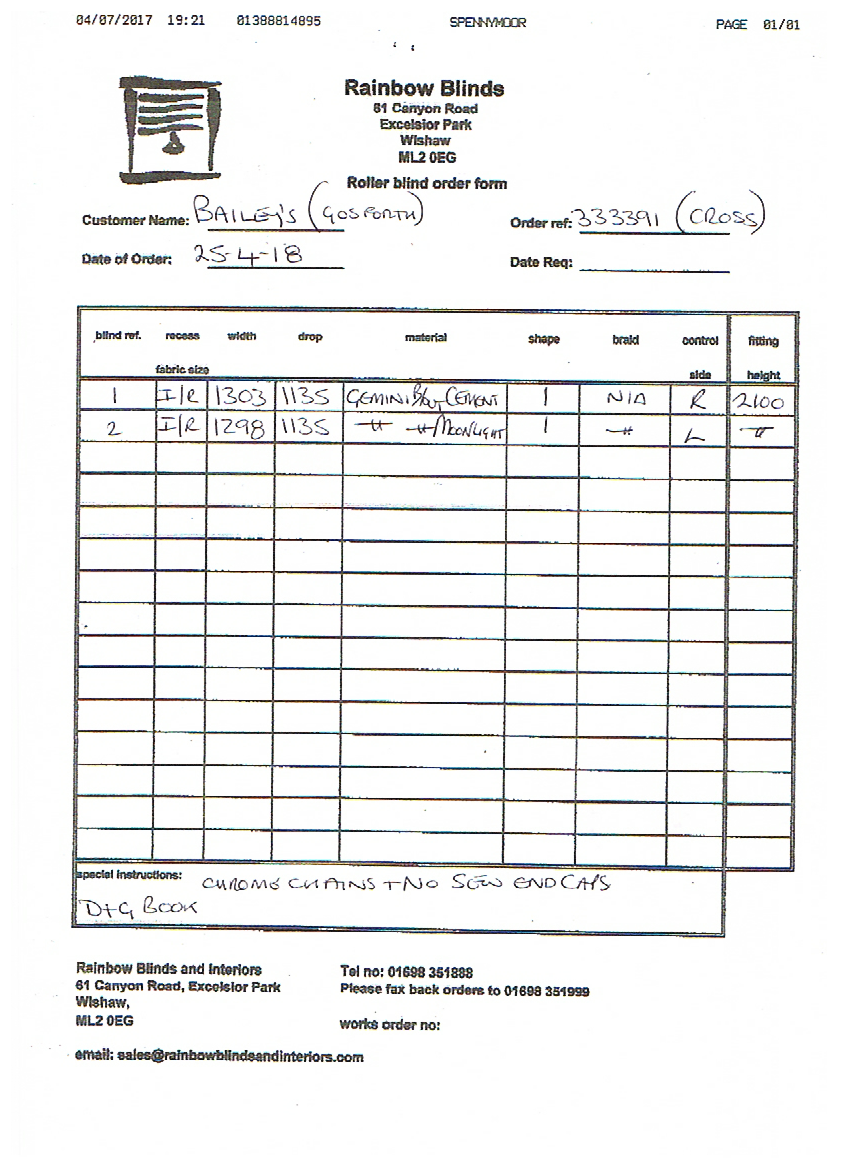 04/07/2017 19:21 01388814895 SPENNYMOOR PAGE 01/01
Rainbow Blinds
61 Canyon Road
Excelsior Park
Wishaw
ML2 0EG
Roller blind order form
Customer Name: BAILEY'S (GOSFORTH) Order ref: 333391 (CROSS)
Date of Order: 25-4-18 Date Req:
blind ref. recess width drop material shape braid control fitting
fabric size side height
1 I/R 1303 1135 GEMINI CEMENT 1 N/A R 2100
2 I/R 1298 1135 -"- -"- MOONLIGHT 1 -"- L -"-
special instructions: CHROME CHAINS + NO SEW END CAPS
D+G BOOK
Rainbow Blinds and Interiors Tel no: 01698 351888
61 Canyon Road, Excelsior Park Please fax back orders to 01698 351999
Wishaw,
ML2 0EG works order no:
email: sales@rainbowblindsandinteriors.com